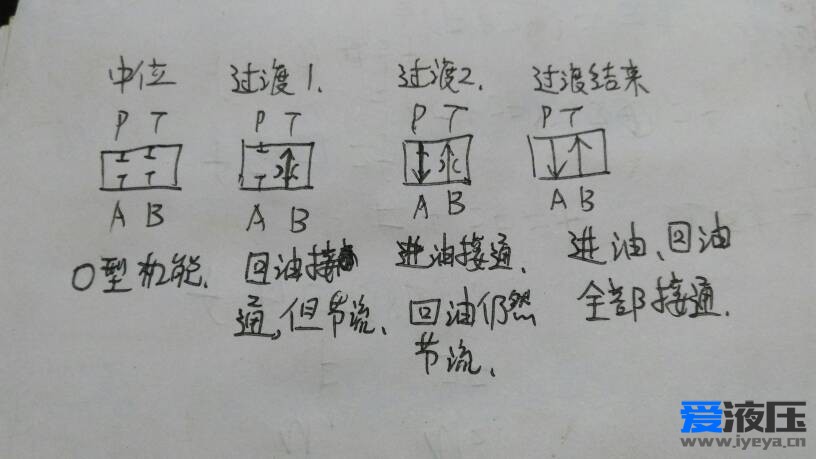 中位 过渡1. 过渡2. 过渡结束
P T P T P T P T
A B A B A B A B
O型机能. 回油接通,但节流. 进油接通.回油仍然节流. 进油、回油全部接通.
爱液压
www.iyeya.cn